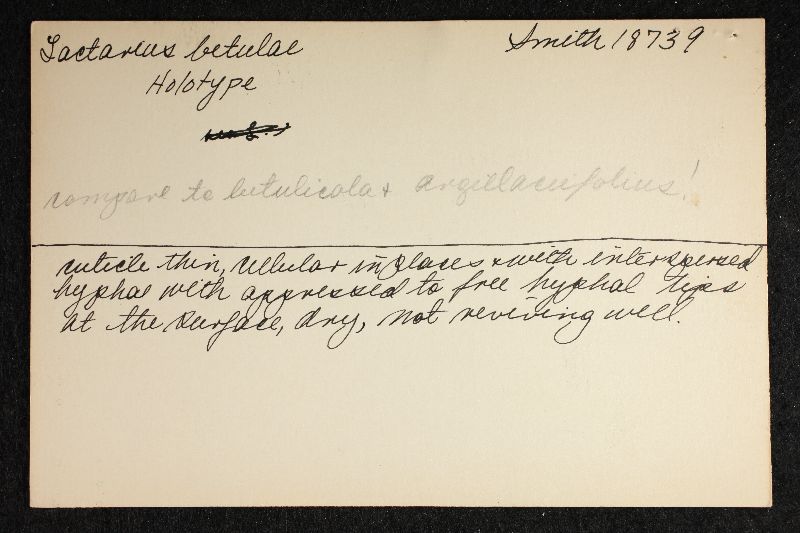 Lactarius betulae
Smith 18739
Holotype
compare to betulicola & argillaceifolius!
cuticle thin, cellular in places & with interspersed
hyphae with appressed to free hyphal tips
at the surface, dry, not reviving well.